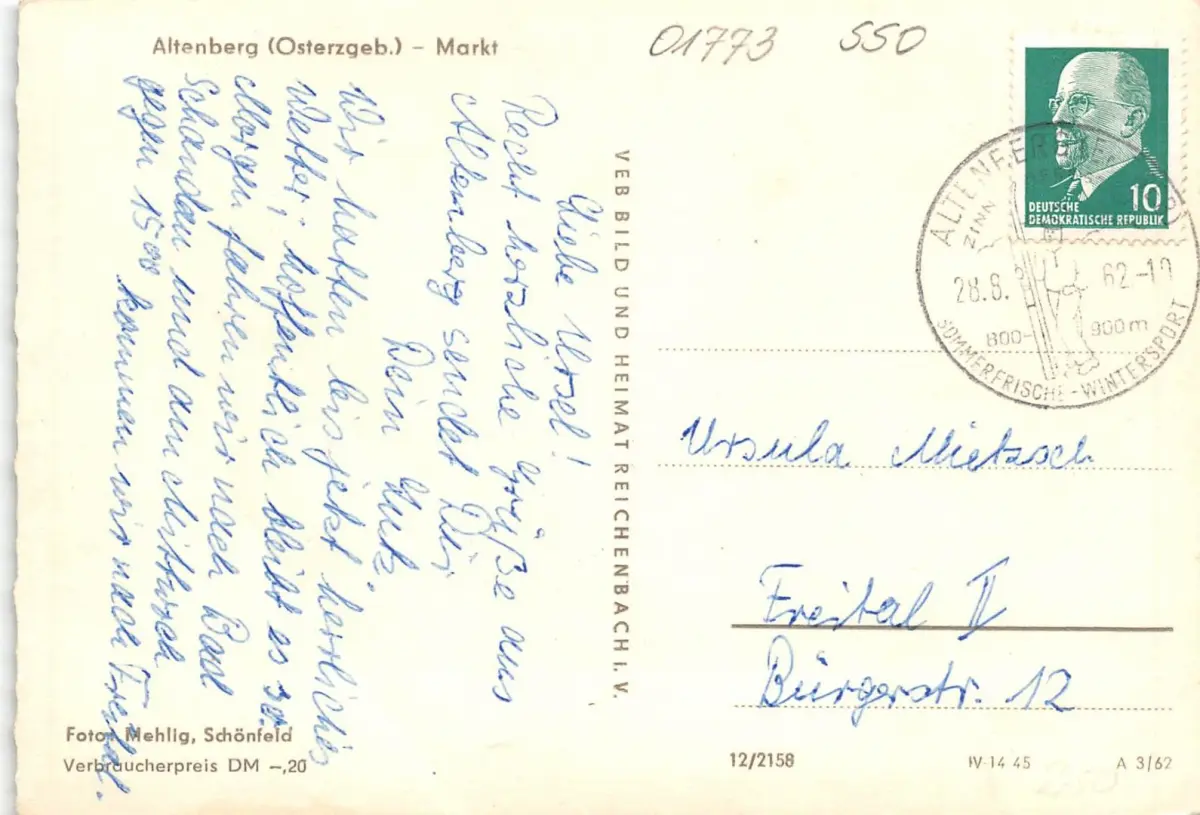 Altenberg (Osterzgeb.) – Markt
01773 550
Liebe Ursel!
Recht herzliche Grüße aus
Altenberg sendet Dir
Dein Lutz
Wir hatten bis jetzt herrliches
Wetter; hoffentlich bleibt es so.
Morgen fahren wir nach Bad
Schandau und am Mittwoch
gegen 1500 kommen wir nach Freital.
VEB BILD UND HEIMAT REICHENBACH i. V.
10
DEUTSCHE
DEMOKRATISCHE REPUBLIK
ZINN
28.8. 62-10
800- 900m
SOMMERFRISCHE-WINTERSPORT
Ursula Mietzsch
Freital II
Bürgerstr. 12
Foto: Mehlig, Schönfeld
Verbraucherpreis DM –,20
12/2158 IV-14 45 A 3/62